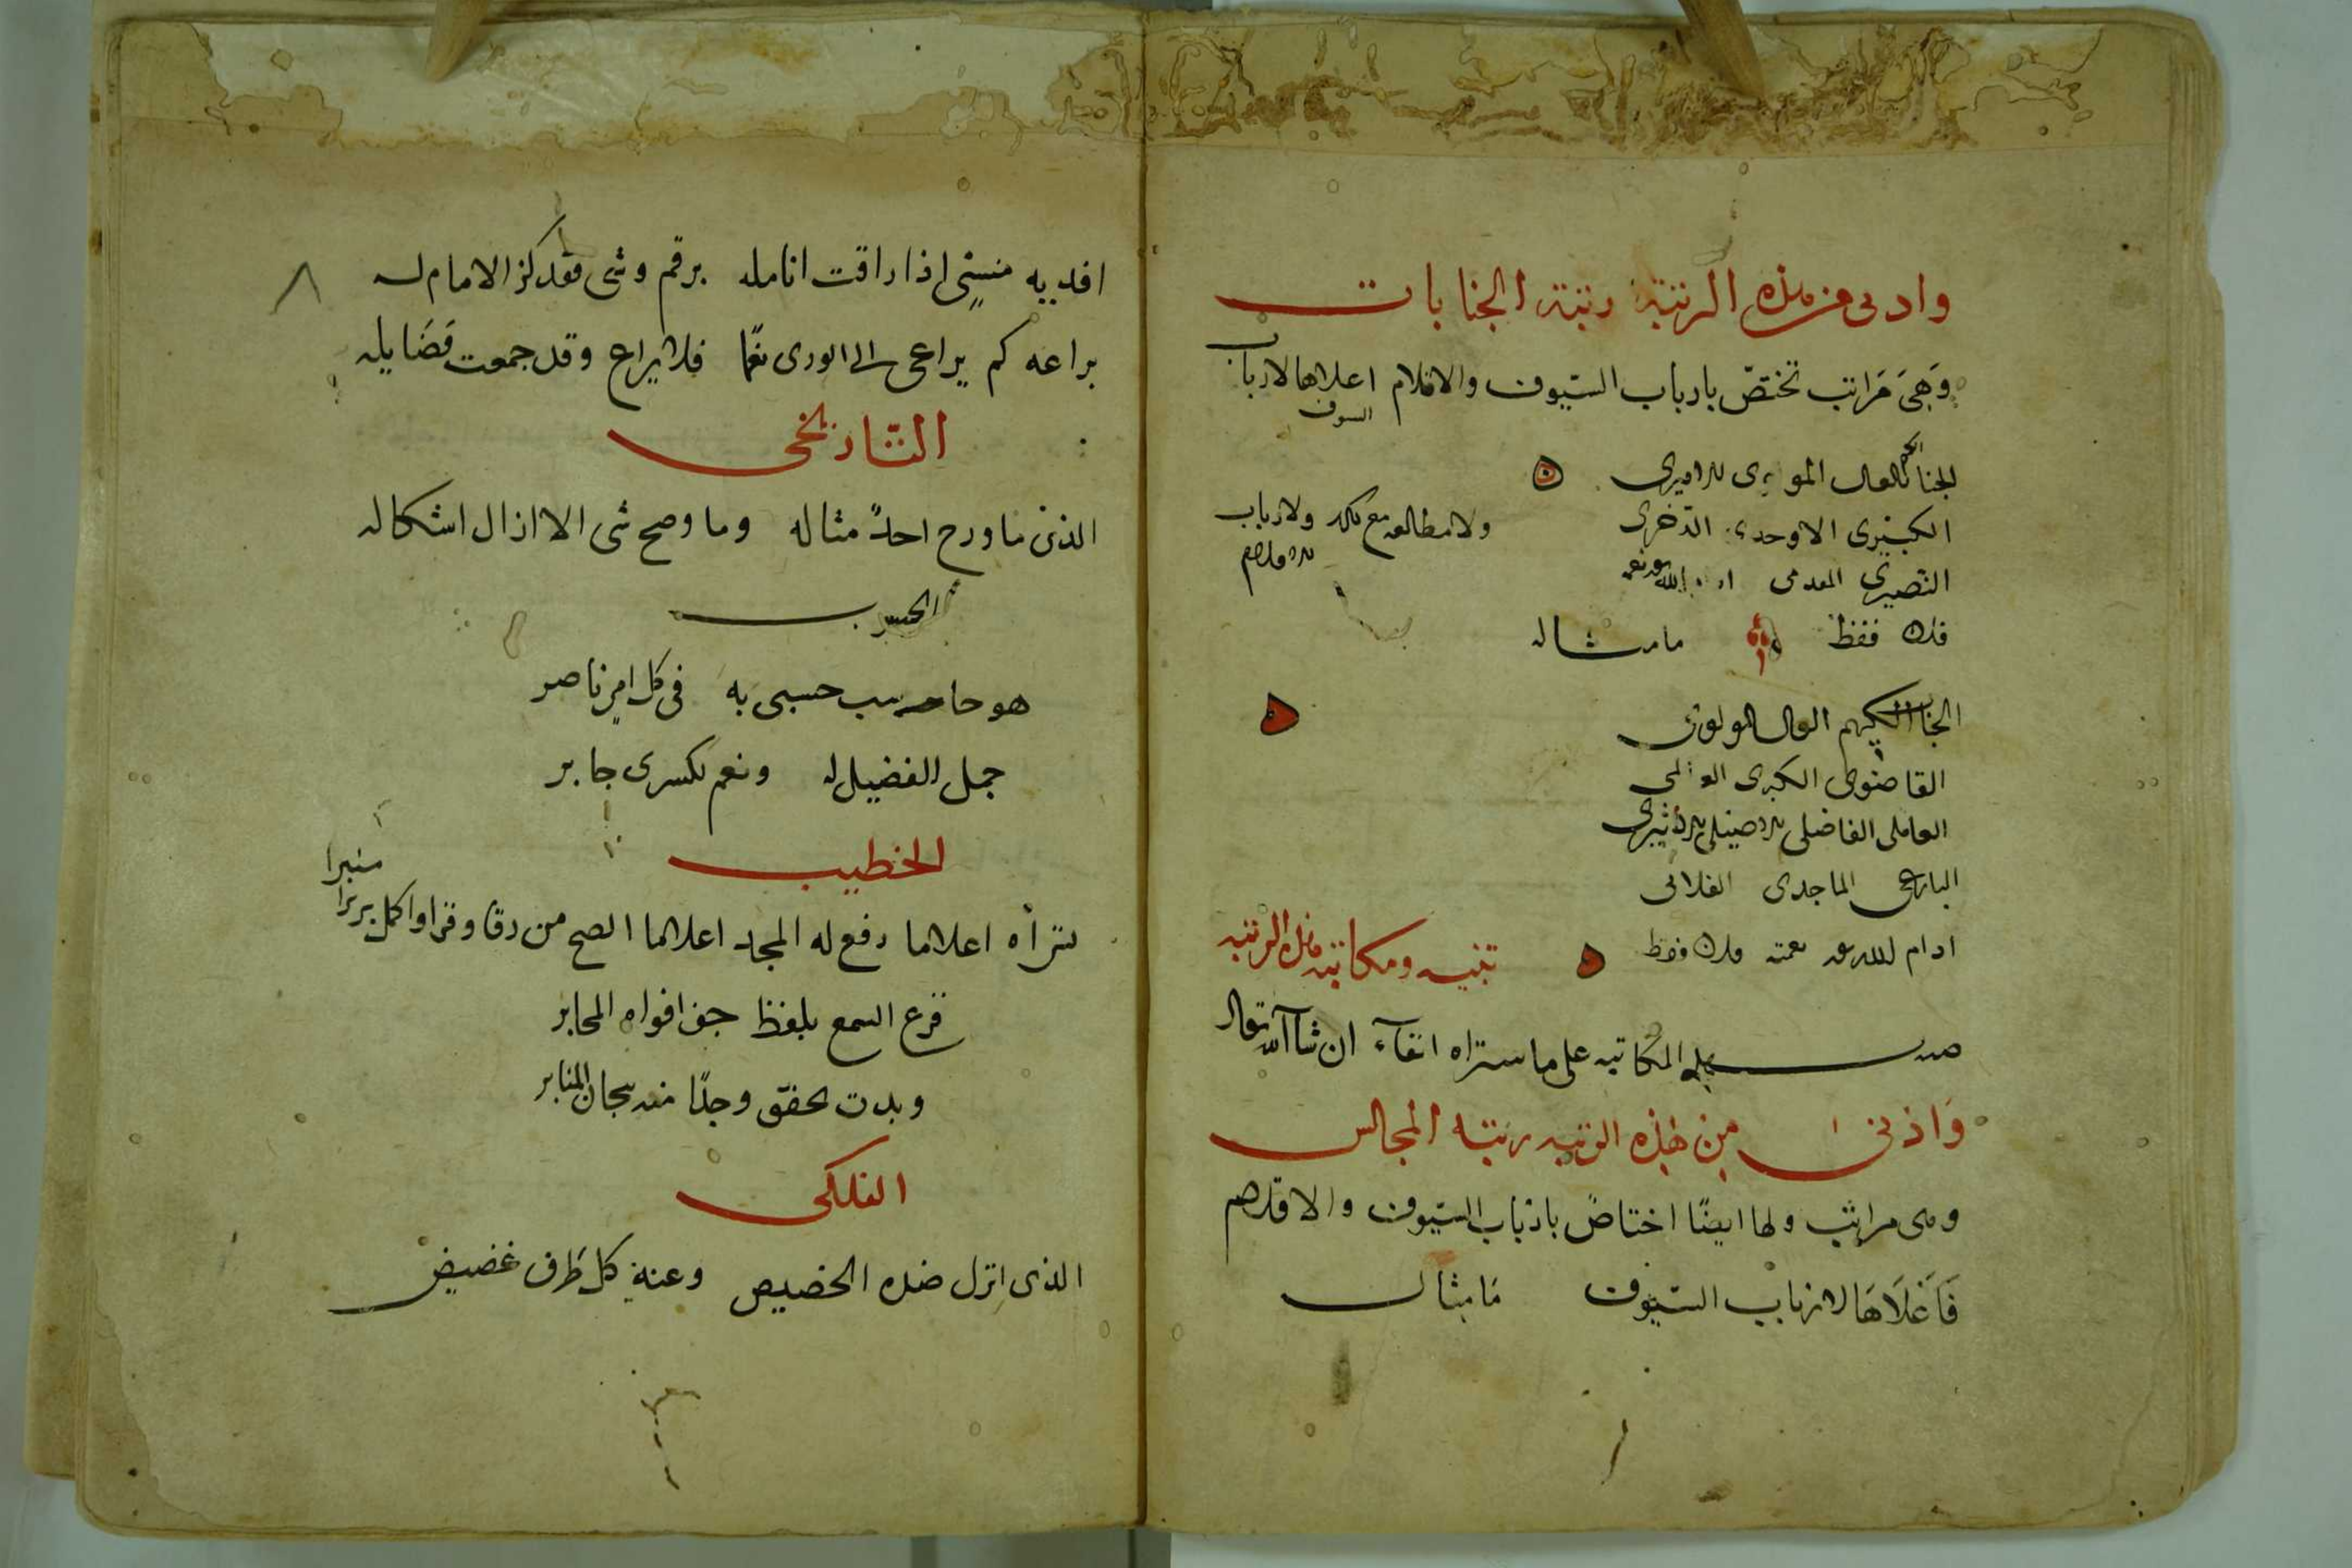 وادنى من هذه الرتبة رتبة الجنابات
وَهِىَ مَراتب تختصّ بارباب السّيوف والاقلام اعلاها لارباب
السيوف
الجناب الكريم العالى المولوى الاميرى
الكبيرى الاوحدى الذخرى
ولا مطالعه مع ذلك ولارباب
الاقلام
النصيرى المقدمى ادام الله نعمته
فلان فقط ما مثاله
الجناب الكريم العالى المولوى
القاضوى الكبيرى العالمى
العاملى الفاضلى الاصيلى الاثيرى
البارعى الماجدى الفلانى
ادام الله نعمته فلان فقط
تنبيه ومكاتبه هذه الرتبه
صدر المكاتبه على ما ستراه انفآء ان شآ الله تعالى
وَادنى من هذه الرتبه رتبه المجالس
وهى مراتب ولها ايضًا اختاصٌ بارباب السّيوف والاقلام
فَاَعْلَاهَا لارباب السّيوف مَا مثاله
٨
افديه منشى اذا راقت انامله برقم وشى فقد كز الامام له
براعه كم يراعى الى الورى نغمًا فلا يراع وقد جمعت فَضَايله
التّاريخى
الذى ما ورخ احدٌ مثاله وما وضح شى الا ازال اشكاله
الحسيب
هو حاسب حسبى به فى كل امرٍ ناصر
جمل الفضيل له ونعم لكسرى جابر
الخطيب
منبرا
اعلاما رفع له المجد اعلاما افصح من رقا وقرا واكمل برزا
قرع السمع بلفظ جف افواه المحابر
وبدت تحقق وجدًا منه سجان المنابر
الفلكى
الذى انزل ضده الحضيض وعنه كل طَرف غضيض